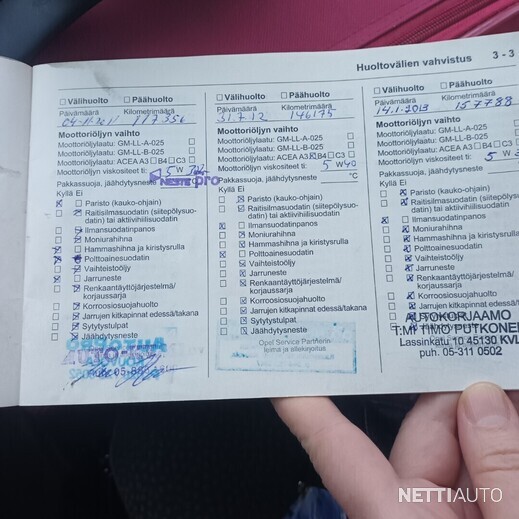 Huoltovälien vahvistus 3 - 3
Välihuolto Päähuolto
Päivämäärä Kilometrimäärä
117356
Moottoriöljyn vaihto
Moottoriöljylaatu: GM-LL-A-025
Moottoriöljylaatu: GM-LL-B-025
Moottoriöljylaatu: ACEA A3 B4 C3
Moottoriöljyn viskositeet ti: 5 W
Pakkassuoja, jäähdytysneste
NESTE pro
Kyllä Ei
Paristo (kauko-ohjain)
Raitisilmasuodatin (siitepölysuo-
datin) tai aktiivihiilisuodatin
Ilmansuodatinpanos
Moniurahihna
Hammashihna ja kiristysrulla
Polttoainesuodatin
Vaihteistoöljy
Jarruneste
Renkaantäyttöjärjestelmä/
korjaussarja
Korroosiosuojahuolto
Jarrujen kitkapinnat edessä/takana
Sytytystulpat
Jäähdytysneste
Välihuolto Päähuolto
Päivämäärä Kilometrimäärä
31.7.12 146175
Moottoriöljyn vaihto
Moottoriöljylaatu: GM-LL-A-025
Moottoriöljylaatu: GM-LL-B-025
Moottoriöljylaatu: ACEA A3 B4 C3
Moottoriöljyn viskositeet ti: 5 W 40
Pakkassuoja, jäähdytysneste °C
Kyllä Ei
Paristo (kauko-ohjain)
Raitisilmasuodatin (siitepölysuo-
datin) tai aktiivihiilisuodatin
Ilmansuodatinpanos
Moniurahihna
Hammashihna ja kiristysrulla
Polttoainesuodatin
Vaihteistoöljy
Jarruneste
Renkaantäyttöjärjestelmä/
korjaussarja
Korroosiosuojahuolto
Jarrujen kitkapinnat edessä/takana
Sytytystulpat
Jäähdytysneste
Opel Service Partnerin
leima ja allekirjoitus
Välihuolto Päähuolto
Päivämäärä Kilometrimäärä
14.1.2013 157788
Moottoriöljyn vaihto
Moottoriöljylaatu: GM-LL-A-025
Moottoriöljylaatu: GM-LL-B-025
Moottoriöljylaatu: ACEA A3 B4 C3
Moottoriöljyn viskositeet ti: 5 W
Pakkassuoja, jäähdytysneste
Kyllä Ei
Paristo (kauko-ohjain)
Raitisilmasuodatin (siitepölysuo-
datin) tai aktiivihiilisuodatin
Ilmansuodatinpanos
Moniurahihna
Hammashihna ja kiristysrulla
Polttoainesuodatin
Vaihteistoöljy
Jarruneste
Renkaantäyttöjärjestelmä/
korjaussarja
Korroosiosuojahuolto
Jarrujen kitkapinnat edessä/takana
Sytytystulpat
Jäähdytysneste
AUTOKORJAAMO
T:MI TIMO PUTKONEN
Lassinkatu 10 45130 KVL
puh. 05-311 0502
NETTIAUTO